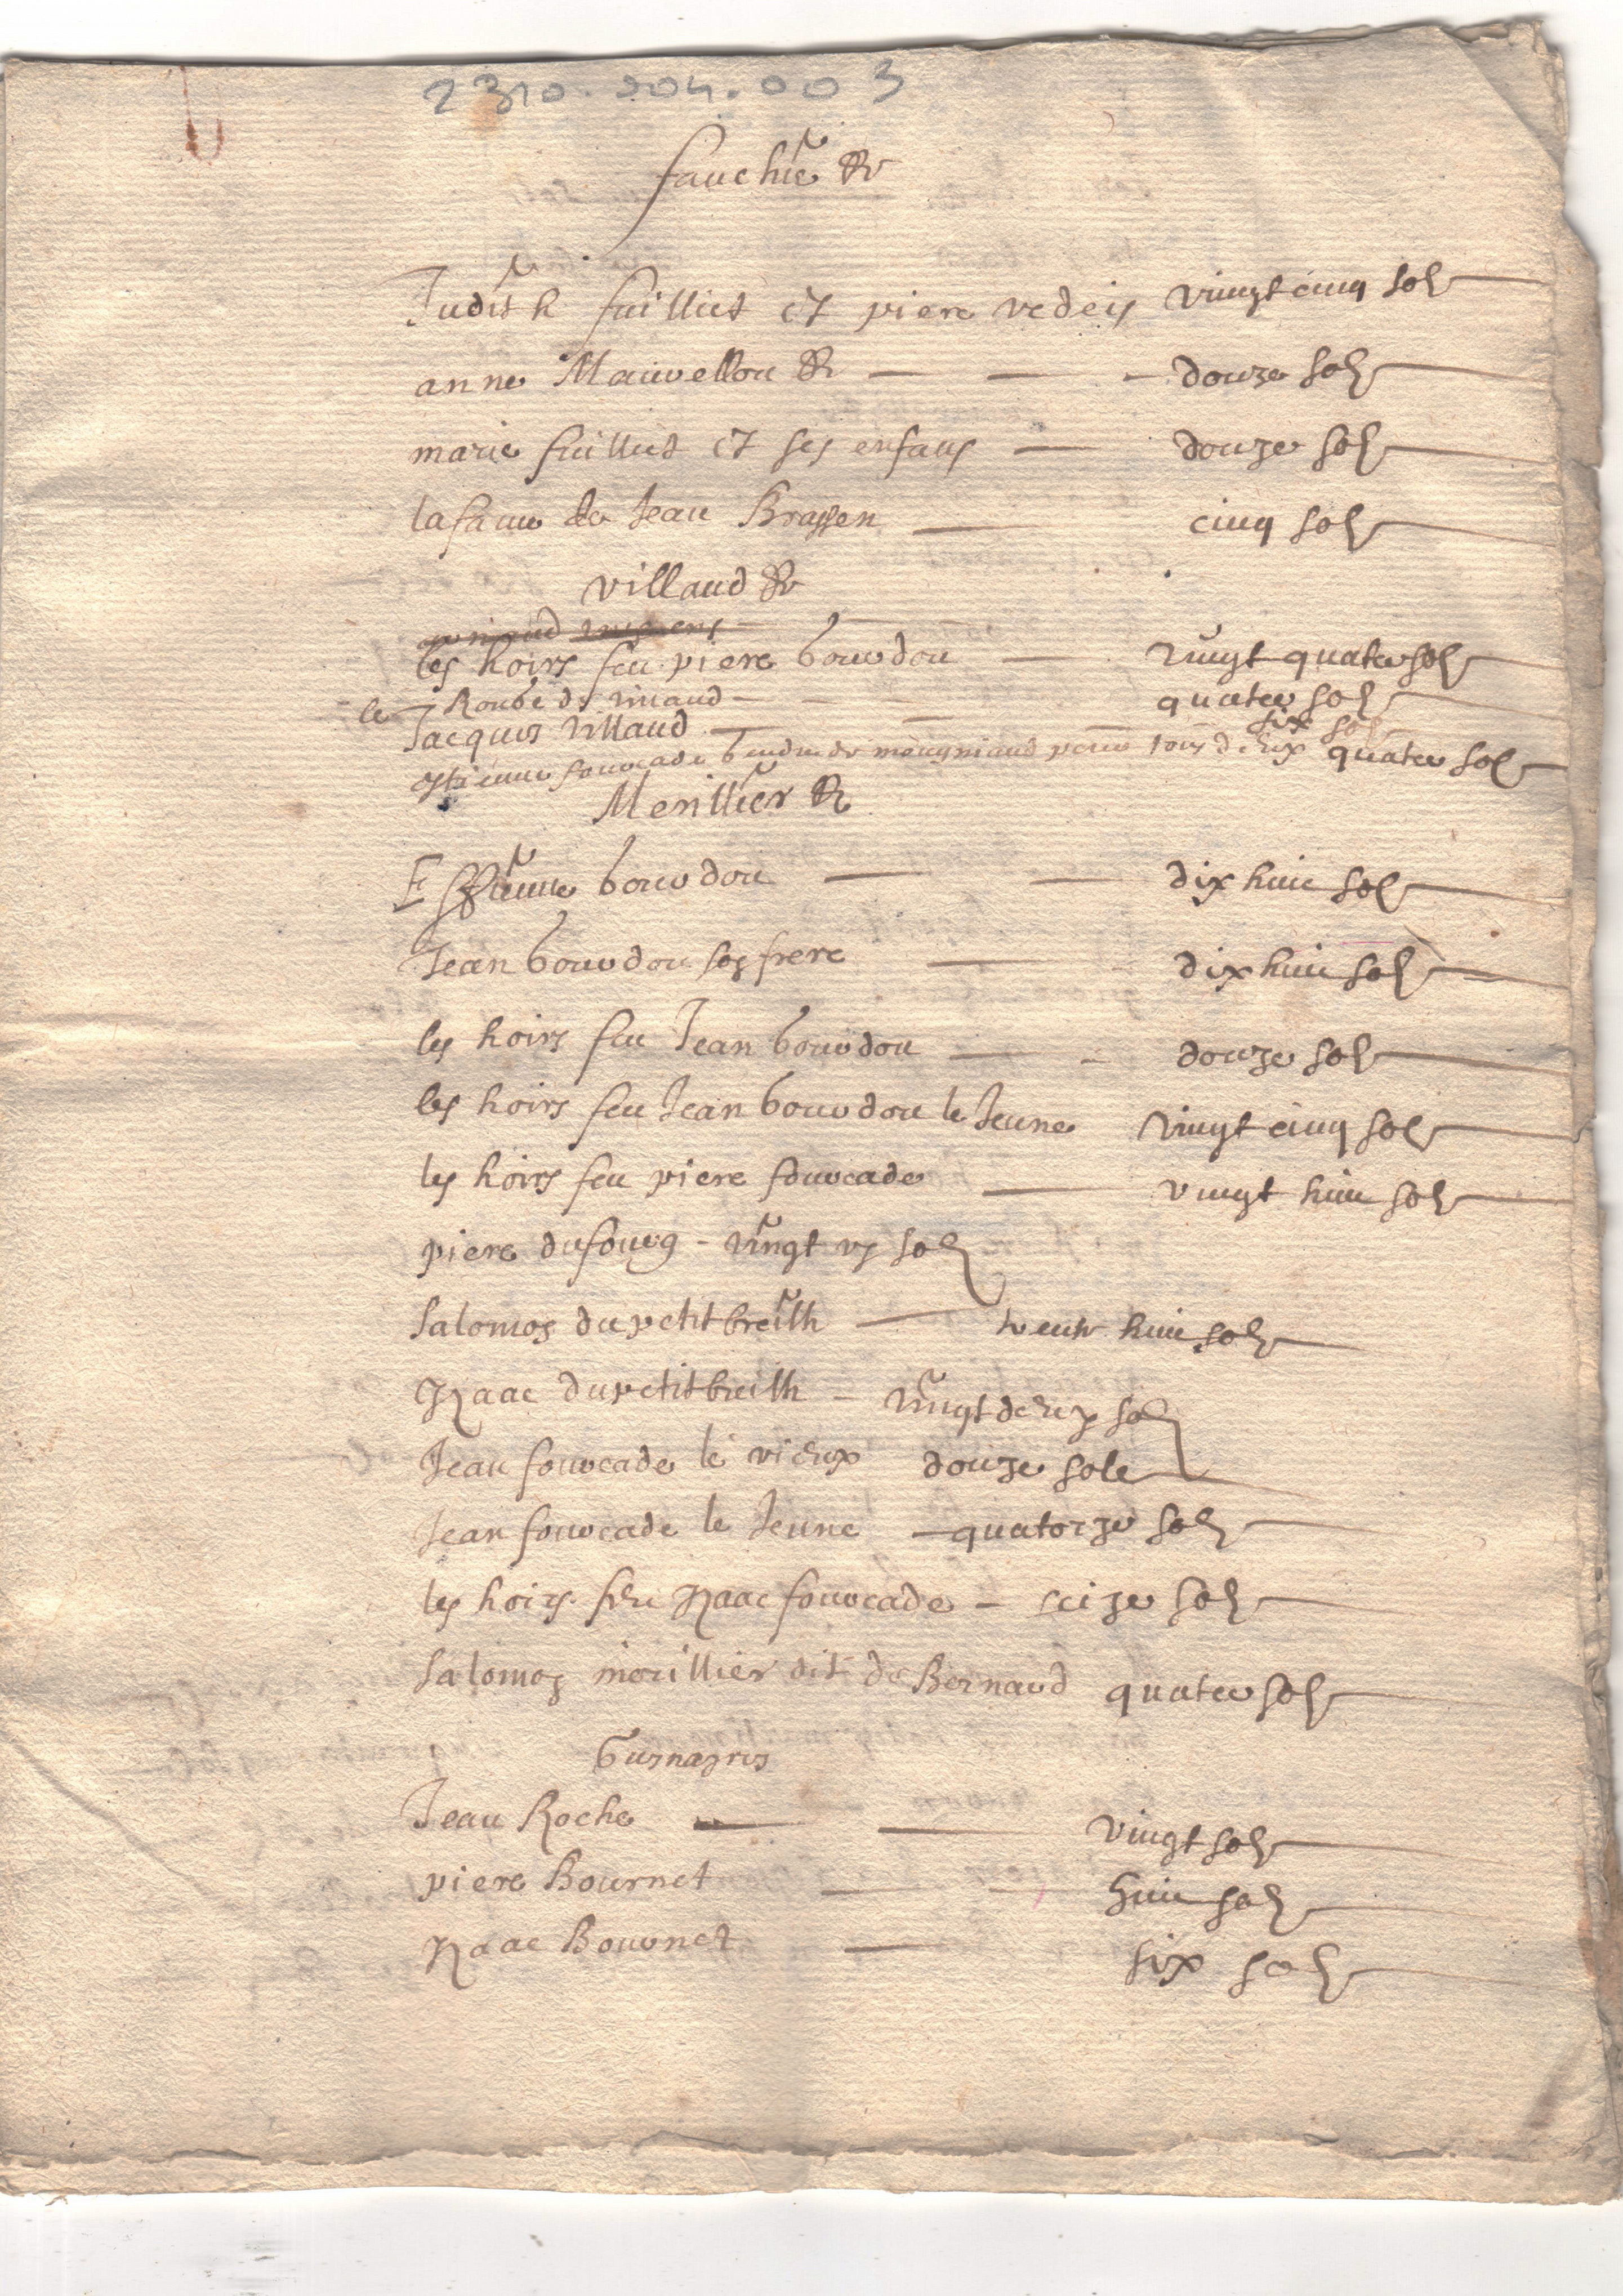 2310.204.003
fauchie &
Judith fuilliet et piere vedeis vingt cinq sols
anne Mauvellou & douze sols
marie fuilliet et ses enfans douze sols
la fame de Jean Brassen cinq sols
villaud &
les hoirs feu piere bourdou vingt quatre sols
le Roube de villaud quatre sols
Jacques villaud six sols
estienne fourcade gendre de meugniaud pour tous deux quatre sols
Merillier &
Estienne bourdou dix huit sols
Jean bourdou son frere dix huit sols
les hoirs feu Jean bourdou douze sols
les hoirs feu Jean bourdou le Jeune vingt cinq sols
les hoirs feu piere fourcade vingt huit sols
piere dufourg - vingt un sols
salomon du petit breilh trente huit sols
Izaac du petit breilh - vingt deux sols
Jean fourcade le vieux douze sols
Jean fourcade le Jeune quatorze sols
les hoirs feu Izaac fourcade - seize sols
salomon morillier dit de Bernard quatre sols
Jean Roche vingt sols
piere Bournet huit sols
Izaac Bournet six sols